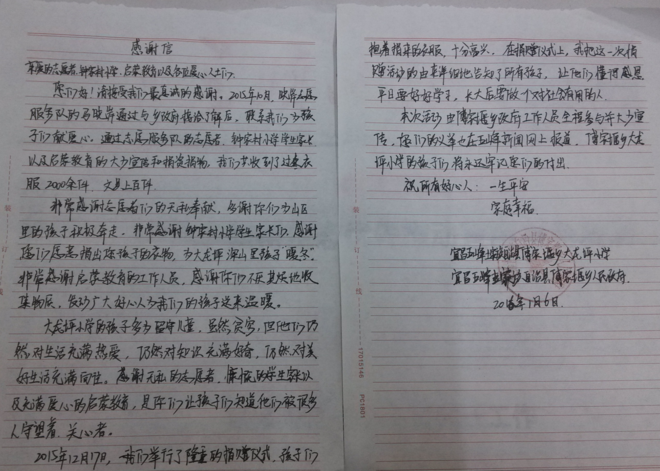 感谢信
您们好！请接受我们最真诚的感谢。2015年10月，
服务队的 通过与乡政府 了解后，联系我们为孩
子们献爱心。通过志愿服务队的志愿者、钟家村小学学生家长
以及启蒙教育的大力宣传和捐资捐物，我们共收到了过冬衣
服2000余件，文具上百件。
非常感谢志愿者们的无私奉献，感谢你们为山区
里的孩子积极奔走。非常感谢钟家村小学学生家长，感谢
您们愿意捐出 孩子的衣物，为大龙坪深山里孩子“暖冬”。
非常感谢启蒙教育的工作人员，感谢你们不厌其烦地收
集物资，发动广大好心人为我们的孩子送来温暖。
大龙坪小学的孩子多为留守儿童，虽然贫穷，但他们仍
然对生活充满热爱，仍然对知识充满好奇，仍然对美
好生活充满向往。感谢无私的志愿者、慷慨的学生家长以
及充满爱心的启蒙教育，是你们让孩子们知道他们被很多
人守望着、关心着。
2015年12月17日，我们举行了隆重的捐赠仪式，孩子们
抱着捐来的衣服，十分高兴。在捐赠仪式上，我把这一次捐
赠活动的由来详细地告知了所有孩子，让他们懂得感恩
平日要好好学习，长大后要做个对社会有用的人。
本次活动由傅家堰乡政府工作人员全程参与并大力宣
传，您们的义举也在五峰新闻网上报道。傅家堰乡大龙
坪小学的孩子们将永远牢记您们的付出。
祝所有好心人：一生平安
家庭幸福
宜昌五峰土家族自治县傅家堰乡大龙坪小学
宜昌五峰土家族自治县傅家堰乡人民政府
2016年1月6日